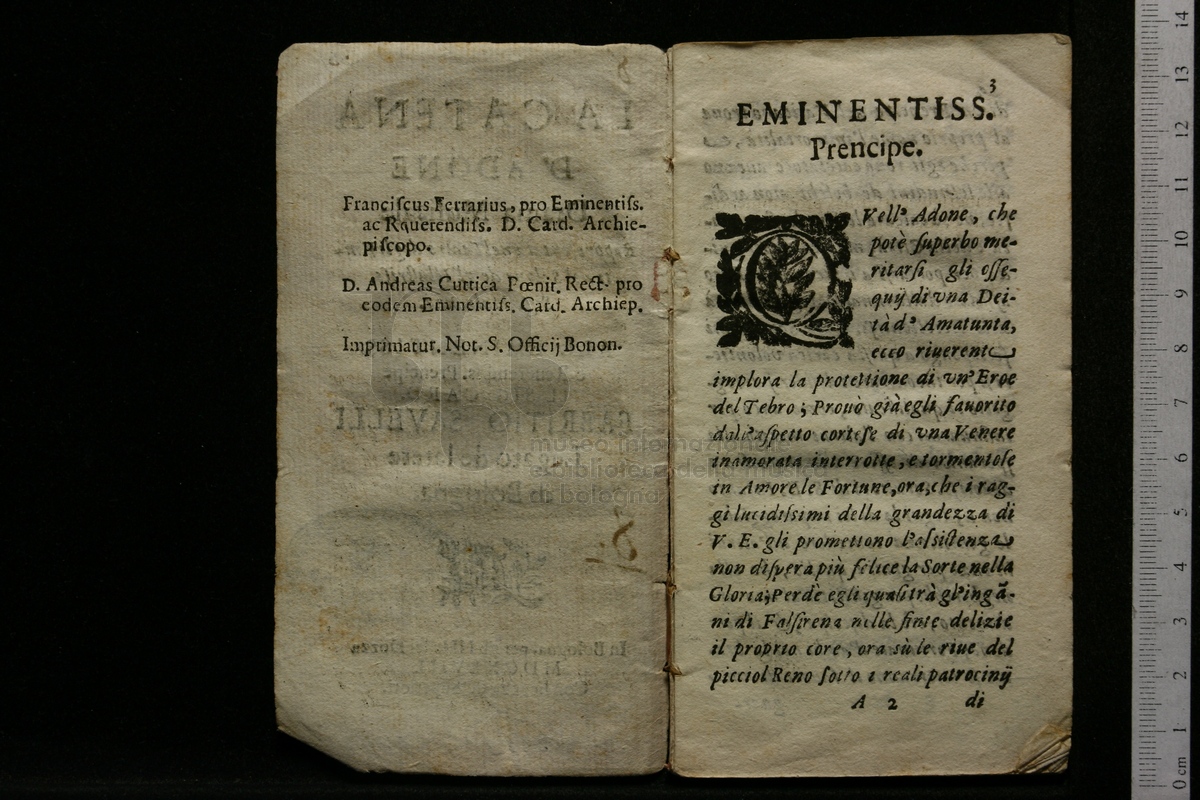 Franciſcus Ferrarius, pro Eminentiſs.
ac Rquerendiſs. D. Card. Archie-
piſcopo.
D. Andreas Cuttica Fœnit. Rect. pro
eodem Eminentiſs. Card. Archiep.
Imprimatur. Not. S. Officij Bonon.
museo internazionale
e biblioteca della musica
di bologna
3
EMINENTISS.
Prencipe.
QVell' Adone, che
potè ſuperbo me-
ritarſi gli oſſe-
quij di vna Dei-
tà d' Amatunta,
ecco riuerente
implora la protettione di vn' Eroe
del Tebro; Prouò già egli fauorito
dall'aſpetto corteſe di vna Venere
inamorata interrotte, e tormentoſe
in Amore le Fortune, ora, che i rag-
gi lucidiſsimi della grandezza di
V. E. gli promettono l'aſsiſtenza
non diſpera più felice la Sorte nella
Gloria; Perdè egli quaſi trà gl'ingã-
ni di Falſirena nelle finte delizie
il proprio core, ora sù le riue del
picciol Reno ſotto i reali patrocinij
A 2 di